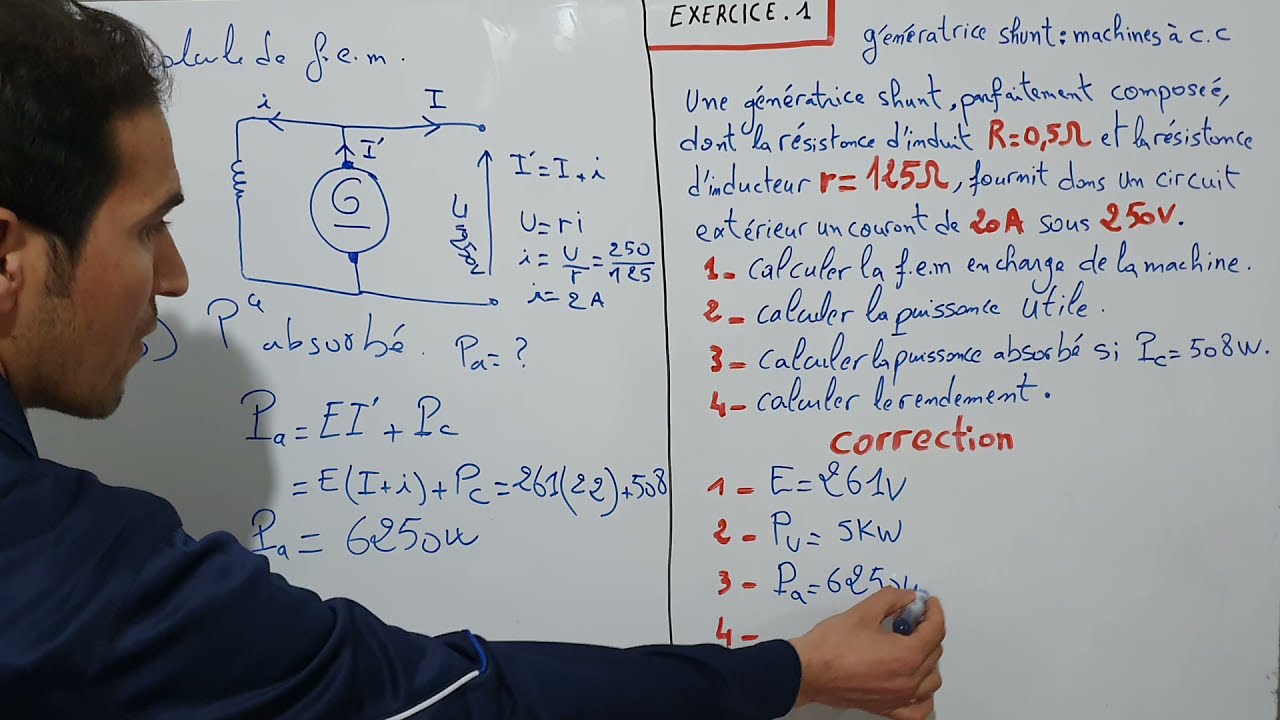 de f.e.m.
i
I
I'
G
U=250V
I'=I+i
U=ri
i=U/r=250/125
i=2A
P absorbé. Pa=?
Pa=EI'+Pc
=E(I+i)+Pc=261(22)+508
Pa=6250w
EXERCICE.1
génératrice shunt: machines à c.c
Une génératrice shunt, parfaitement composeé,
dont la résistance d'induit R=0,5Ω et la résistance
d'inducteur r=125Ω, fournit dans un circuit
extérieur un couront de 20A sous 250V.
1- calculer la f.e.m en charge de la machine.
2- calculer la puissance utile.
3- calculer la puissance absorbé si Pc=508w.
4- calculer le rendement.
correction
1- E=261V
2- PU=5KW
3- Pa=6250w
4-